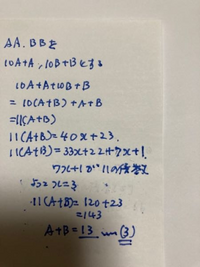 AA, BBを
10A+A, 10B+Bにする
10A+A+10B+B
=10(A+B)+A+B
=11(A+B)
11(A+B)=40x+23.
11(A+B)=33x+22+7x+1.
7x+1が11の倍数
よってx=3
11(A+B)=120+23
=143
A+B=13 (3)